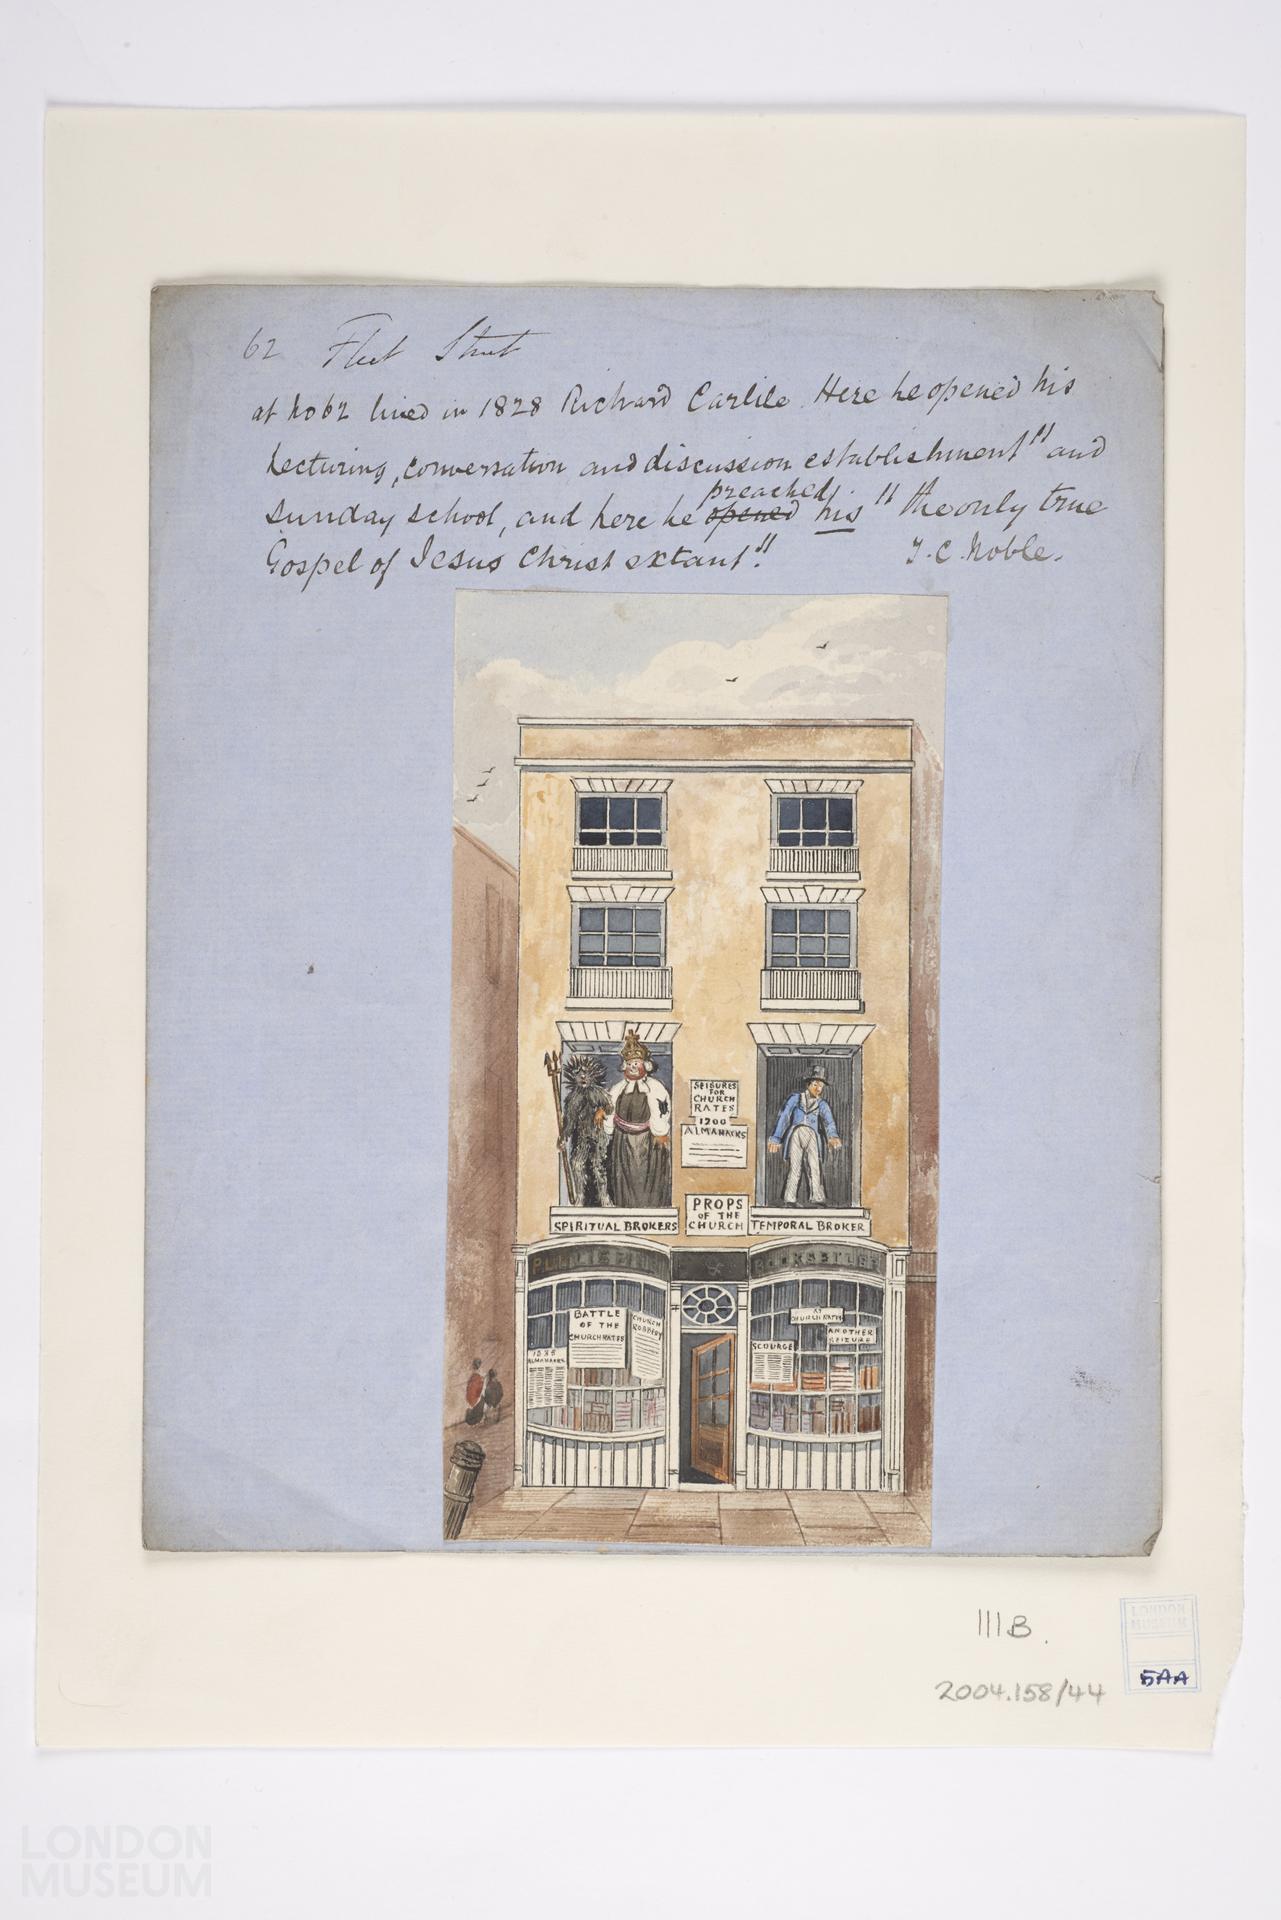 62 Fleet Street
at No 62 lived in 1828 Richard Carlile. Here he opened his
Lecturing, conversation and discussion establishment" and
Sunday school, and here he opened preached his " the only true
Gospel of Jesus Christ extant".
T. C. Noble.
SEISURES
FOR
CHURCH
RATES
1200
ALMANACKS
PROPS
OF THE
CHURCH
SPIRITUAL BROKERS
TEMPORAL BROKER
PUBLISHER
&
BOOKSELLER
BATTLE
OF THE
CHURCH RATES
CHURCH
ROBBERY
ALMANACKS
CHURCH RATES
ANOTHER
SEIZURE
SCOURGE
IIIB.
2004.158/44
LONDON
MUSEUM
5AA
LONDON
MUSEUM